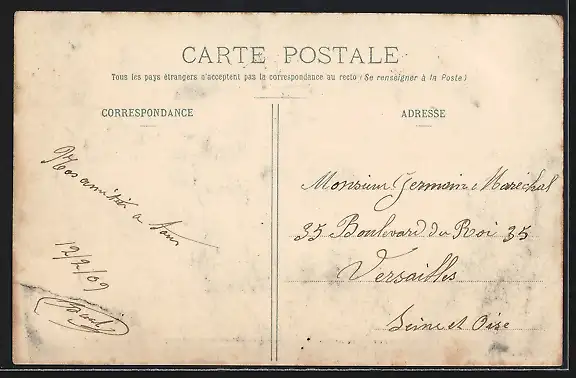 CARTE POSTALE
Tous les pays étrangers n'acceptent pas la correspondance au recto (Se renseigner à la Poste)
CORRESPONDANCE
ADRESSE
Nos amitiés a tous
12/2/09
Monsieur Germain Maréchal
35 Boulevard du Roi 35
Versailles
Seine et Oise